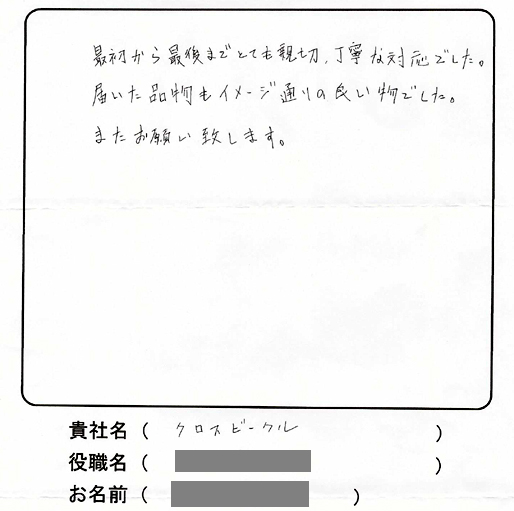 最初から最後までとても親切、丁寧な対応でした。
届いた品物もイメージ通りの良い物でした。
またお願い致します。
貴社名（ クロスビークル ）
役職名（ ）
お名前（ ）